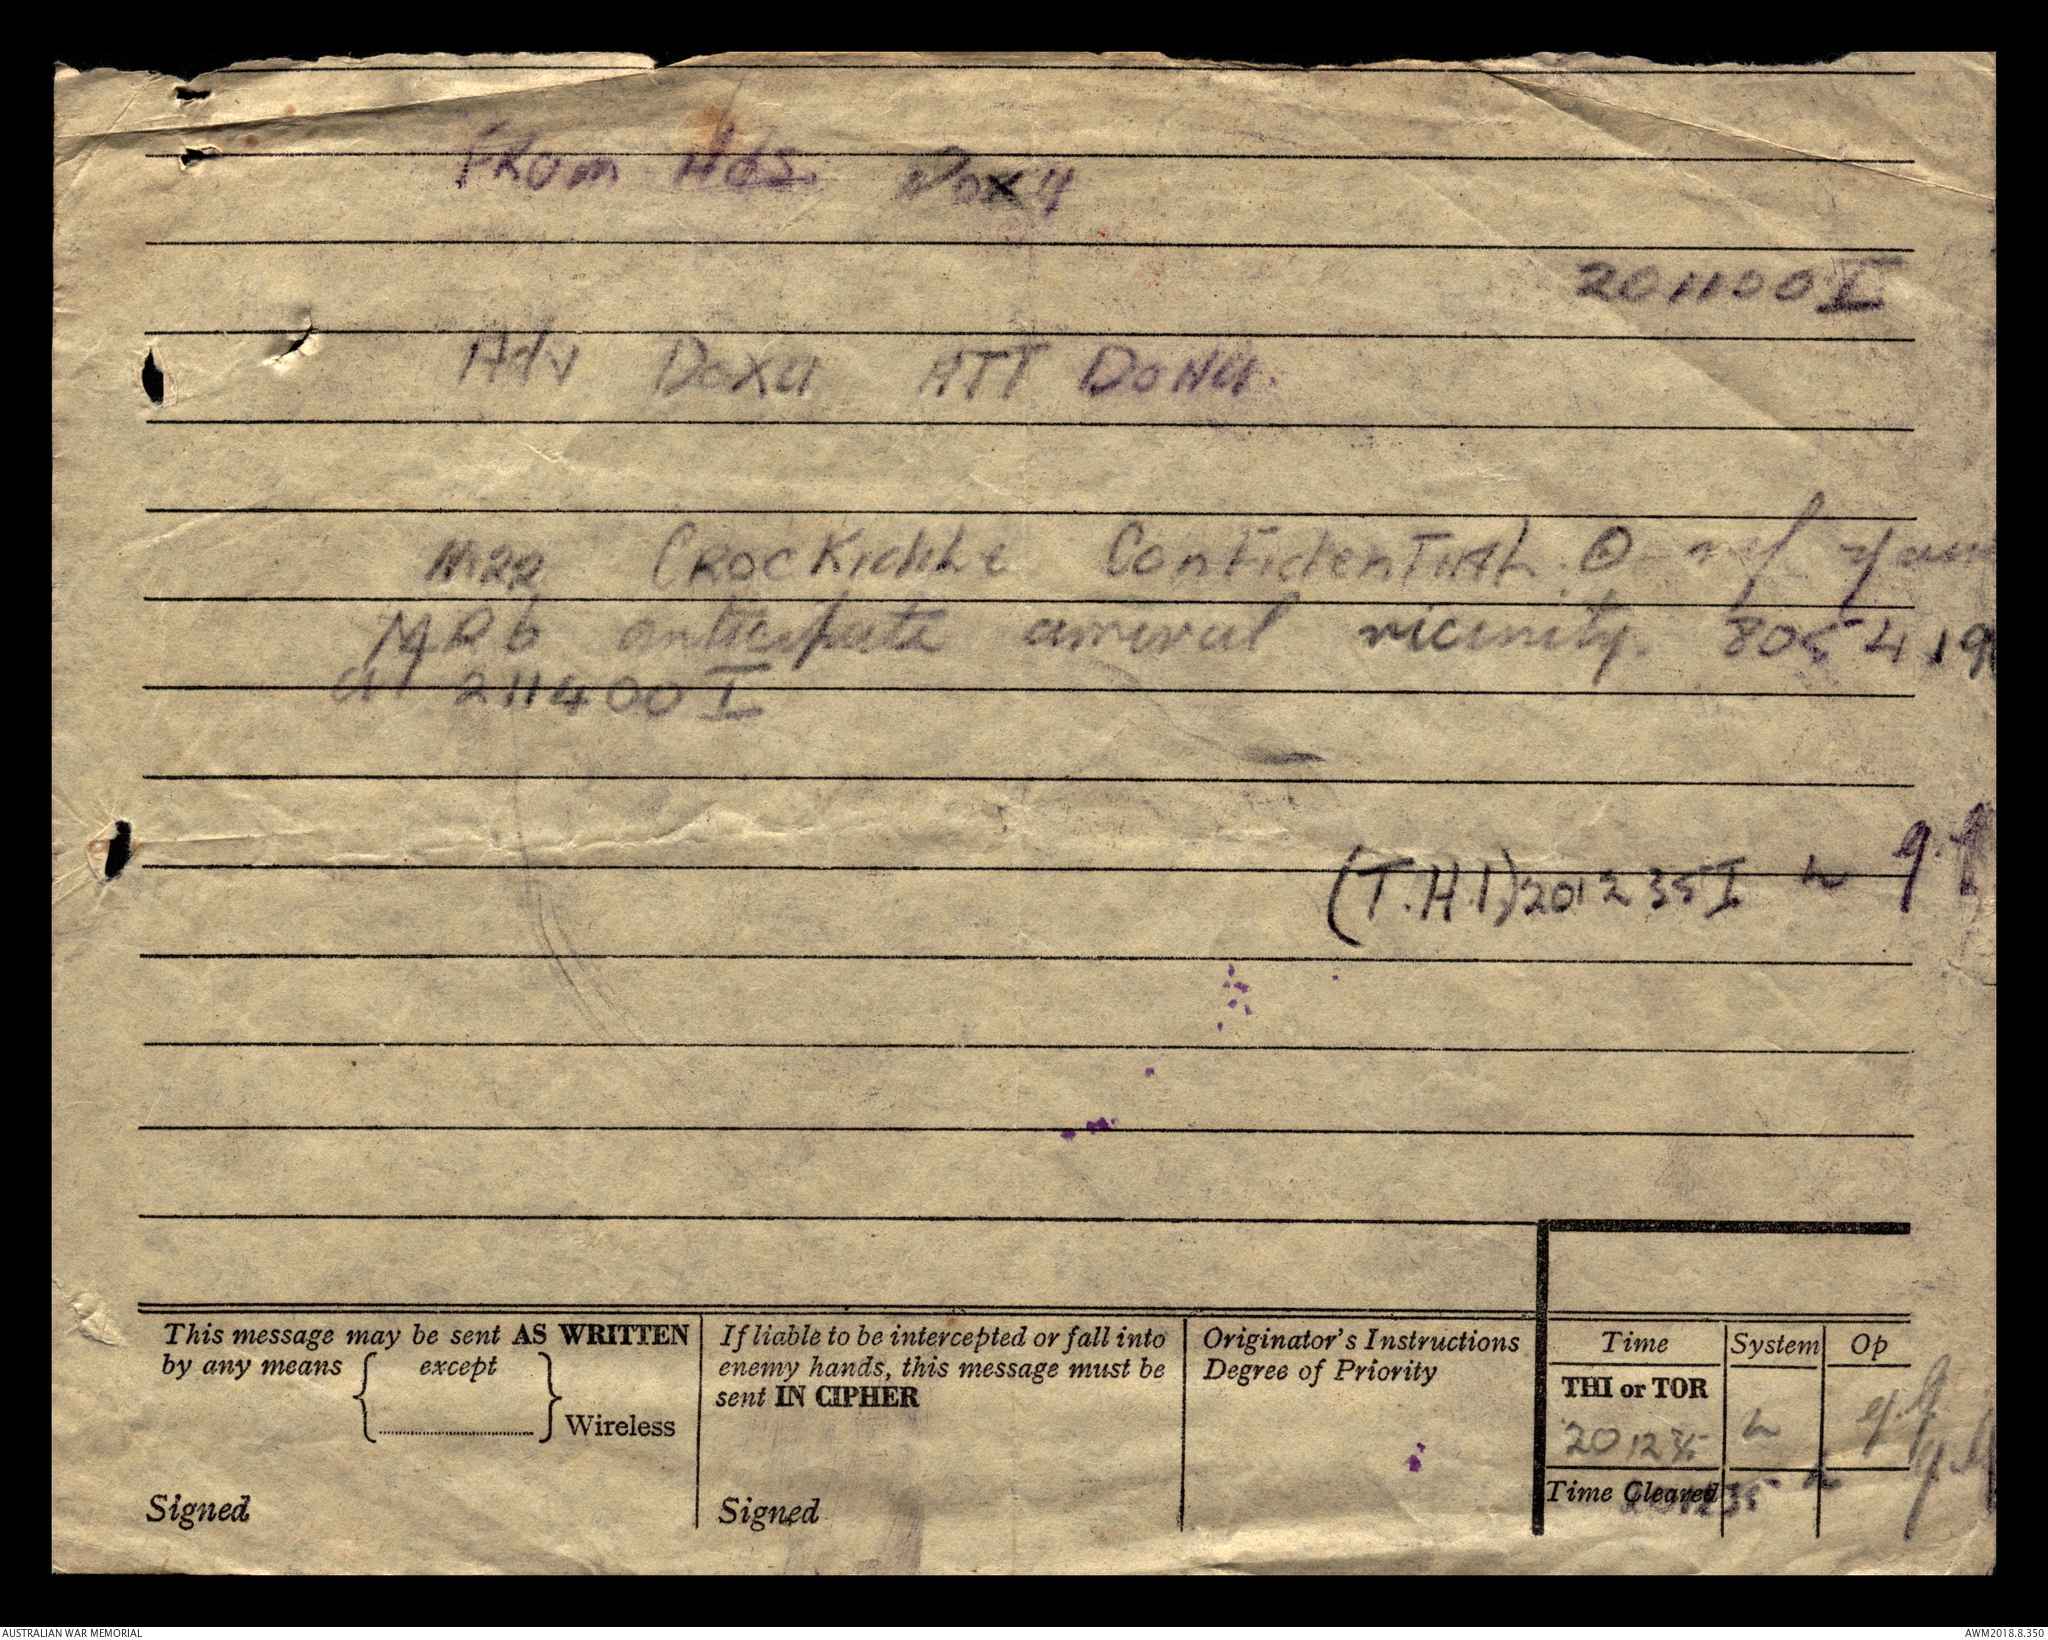 From Hds. Dox4
201100I
Adv Dox4 ATT DoN4.
Confidential. O ref your
anticipate arrival vicinity. 805419
at 211400I
(T.H.I) 201235I
This message may be sent AS WRITTEN
by any means { except } Wireless
Signed
If liable to be intercepted or fall into
enemy hands, this message must be
sent IN CIPHER
Signed
Originator's Instructions
Degree of Priority
Time System Op
THI or TOR
201235
Time Cleared
AUSTRALIAN WAR MEMORIAL
AWM2018.8.350